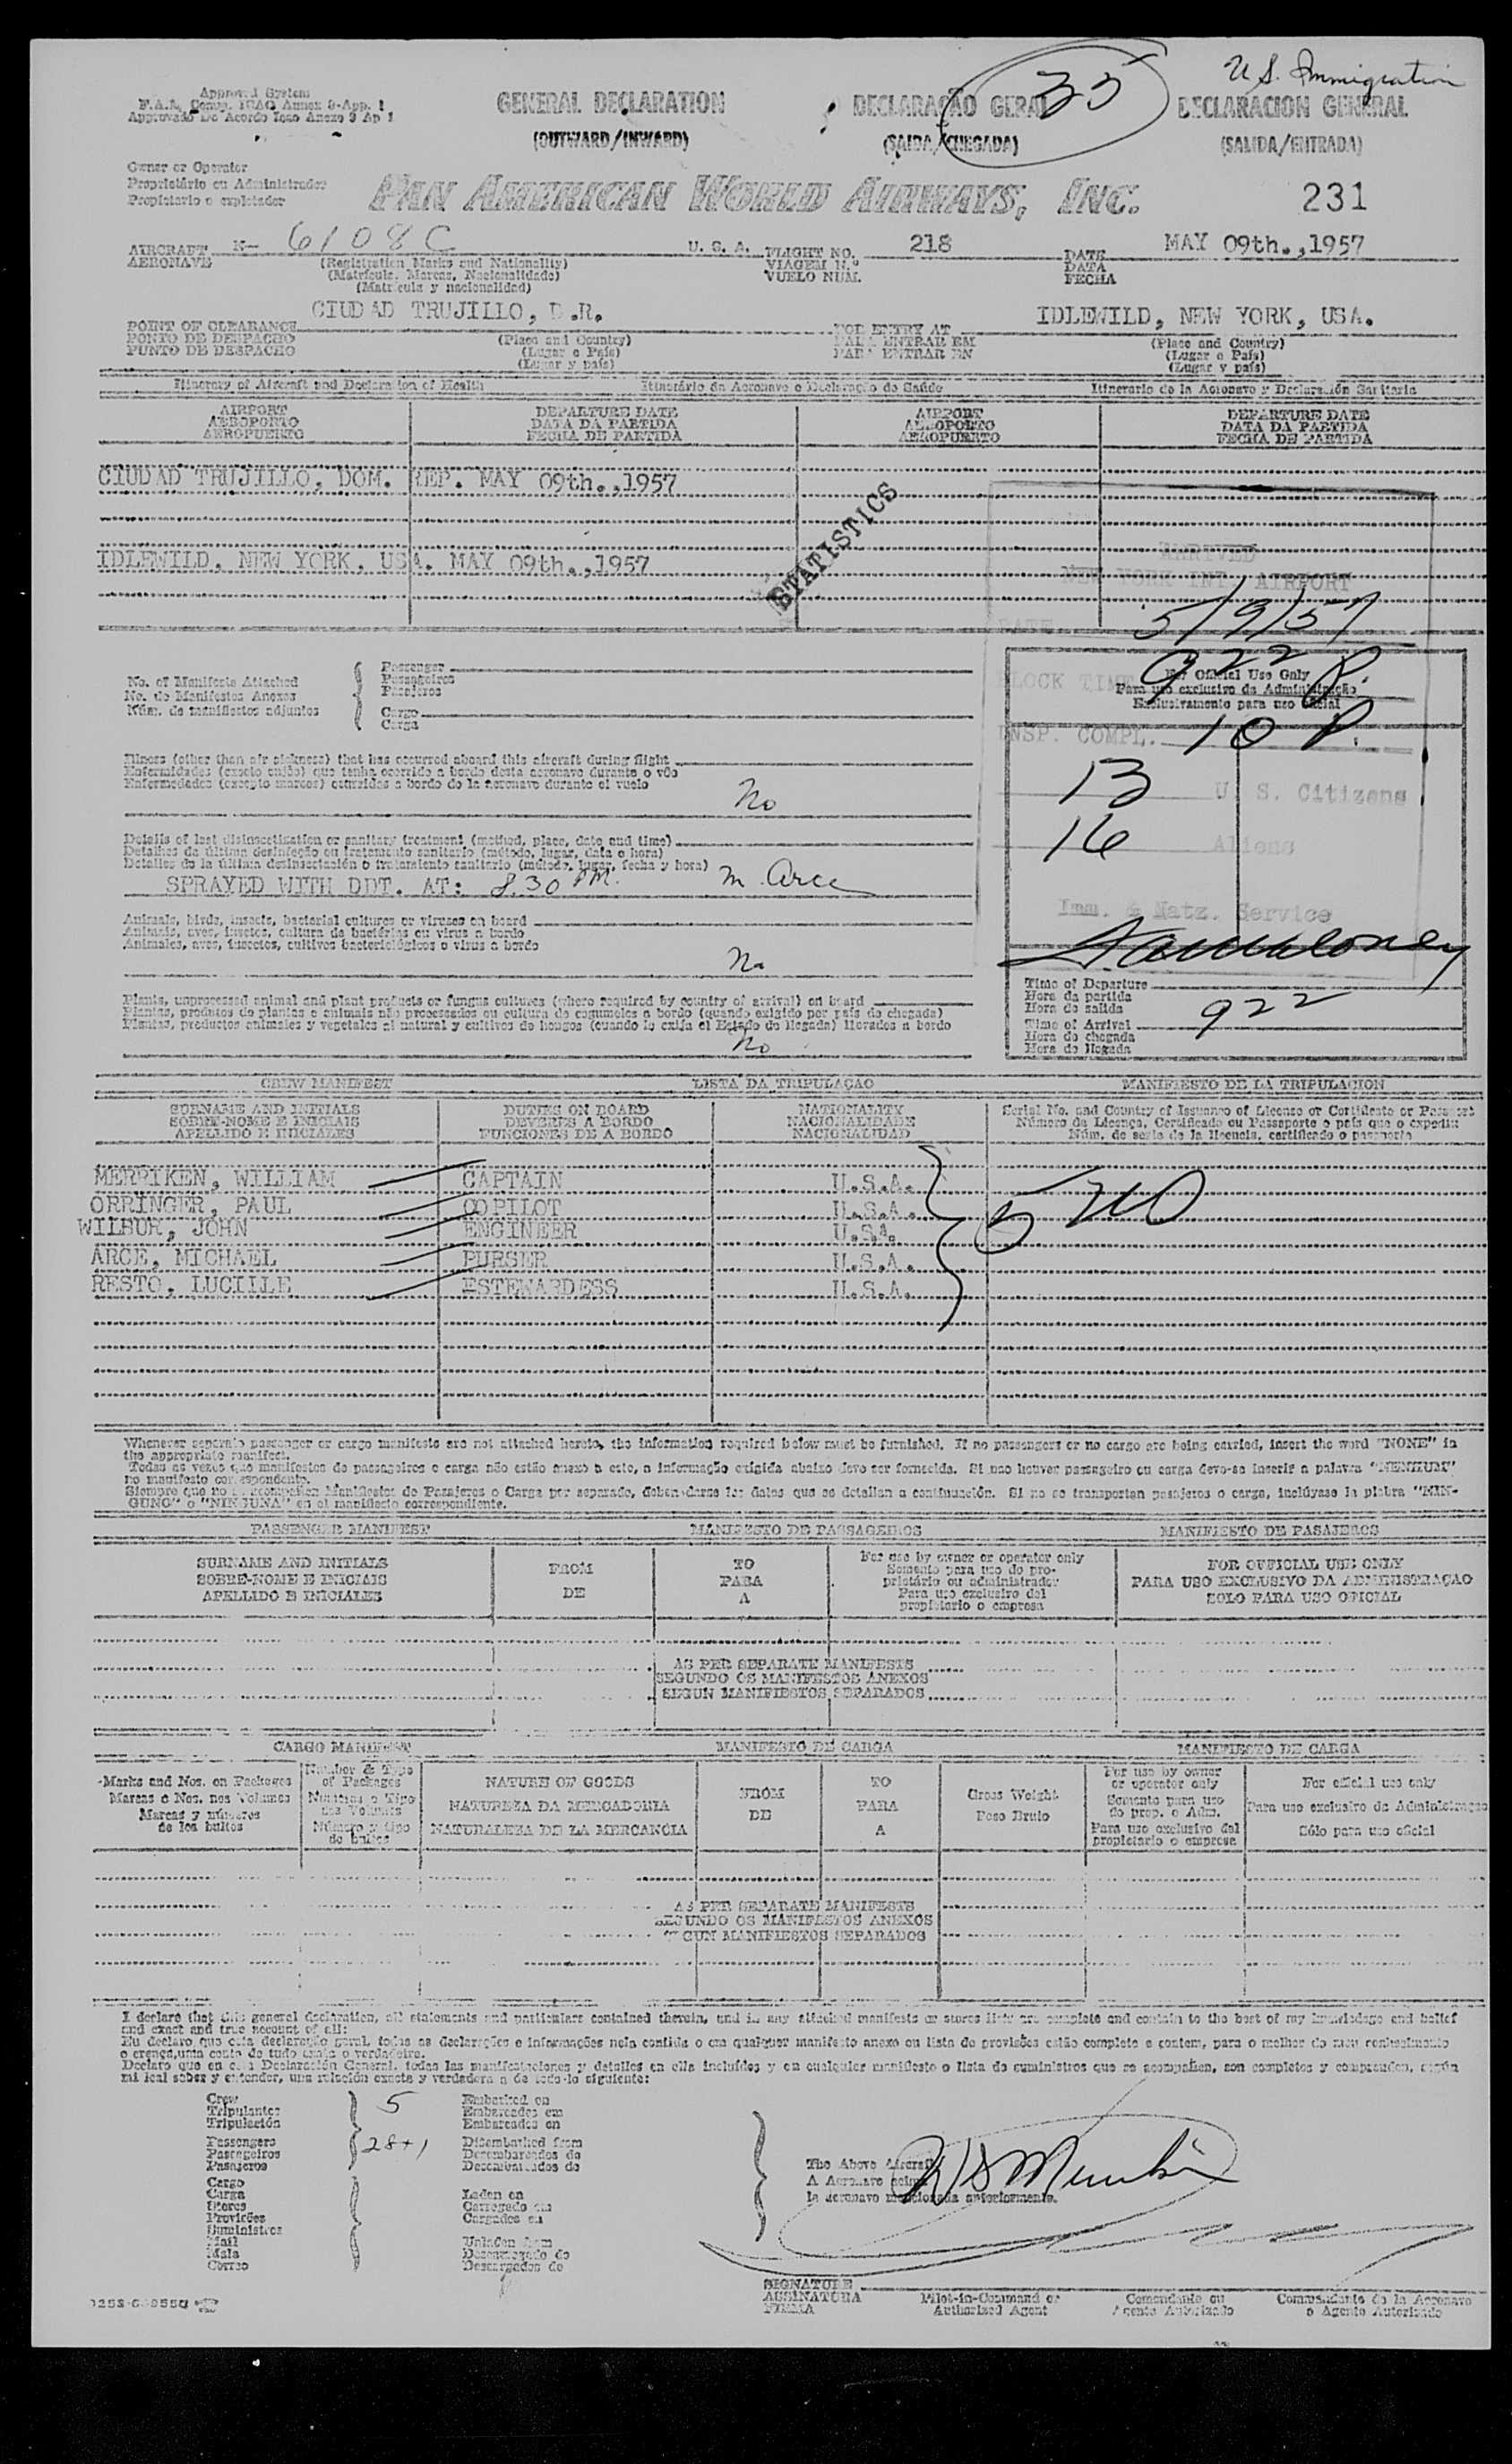 U.S. Immigration
35
Approved System
F.A.L. Comp. ICAO Annex 9-App. 1
Approvado De Acordo Icao Anexo 9 Ap 1
GENERAL DECLARATION
(OUTWARD/INWARD)
DECLARAÇÃO GERAL
(SAIDA/CHEGADA)
DECLARACION GENERAL
(SALIDA/ENTRADA)
Owner or Operator
Proprietário ou Administrador
Propietario o explotador
PAN AMERICAN WORLD AIRWAYS, INC.
231
AIRCRAFT N- 6108C U. S. A. FLIGHT NO. 218 DATE MAY 09th.,1957
AERONAVE (Registration Marks and Nationality) VIAGEM N.º DATA
(Matrícula, Marcas, Nacionalidade) VUELO NUM. FECHA
(Matrícula y nacionalidad)
POINT OF CLEARANCE CIUDAD TRUJILLO, D.R. FOR ENTRY AT IDLEWILD, NEW YORK, USA.
PONTO DE DESPACHO (Place and Country) PARA ENTRAR EM (Place and Country)
PUNTO DE DESPACHO (Lugar e País) PARA ENTRAR EN (Lugar e País)
(Lugar y país) (Lugar y país)
Itinerary of Aircraft and Declaration of Health Itinerário da Aeronave e Declaração de Saúde Itinerario de la Aeronave y Declaración Sanitaria
AIRPORT DEPARTURE DATE AIRPORT DEPARTURE DATE
AEROPORTO DATA DA PARTIDA AEROPORTO DATA DA PARTIDA
AEROPUERTO FECHA DE PARTIDA AEROPUERTO FECHA DE PARTIDA
CIUDAD TRUJILLO, DOM. REP. MAY 09th.,1957
IDLEWILD, NEW YORK, USA. MAY 09th.,1957
STATISTICS
ARRIVED
NEW YORK INT. AIRPORT
DATE 5/9/57
BLOCK TIME 922 P.
INSP. COMPL. 10 P.
13 U. S. Citizens
16 Aliens
Imm. & Natz. Service
For Official Use Only
Para uso exclusivo da Administração
Exclusivamente para uso oficial
No. of Manifests Attached
No. de Manifestos Anexos
Núm. de manifiestos adjuntos
Passenger
Passageiros
Pasajeros
Cargo
Carga
Illness (other than air sickness) that has occurred aboard this aircraft during flight
Enfermidades (exceto enjôo) que tenha ocorrido a bordo desta aeronave durante o vôo
Enfermedades (excepto mareos) ocurridas a bordo de la aeronave durante el vuelo
No
Details of last disinsectization or sanitary treatment (method, place, date and time)
Detalhes da última desinfeção ou tratamento sanitario (método, lugar, data e hora)
Detalles de la última desinsectación o tratamiento sanitario (método, lugar, fecha y hora)
SPRAYED WITH DDT. AT: 8.30 PM. M. Arce
Animals, birds, insects, bacterial cultures or viruses on board
Animais, aves, insetos, cultura de bactérias ou virus a bordo
Animales, aves, insectos, cultivos bacteriológicos o virus a bordo
No
Plants, unprocessed animal and plant products or fungus cultures (where required by country of arrival) on board
Plantas, produtos de plantas e animais não processados ou cultura de cogumelos a bordo (quando exigido por país de chegada)
Plantas, productos animales y vegetales al natural y cultivos de hongos (cuando lo exija el Estado de llegada) llevados a bordo
No
Time of Departure
Hora da partida
Hora de salida
Time of Arrival 922
Hora da chegada
Hora de llegada
CREW MANIFEST LISTA DA TRIPULAÇAO MANIFIESTO DE LA TRIPULACION
SURNAME AND INITIALS DUTIES ON BOARD NATIONALITY Serial No. and Country of Issuance of License or Certificate or Passport
SOBRE-NOME E INICIAIS DEVERES A BORDO NACIONALIDADE Número da Licença, Certificado ou Passaporte e país que o expediu
APELLIDO E INICIALES FUNCIONES DE A BORDO NACIONALIDAD Núm. de serie de la licencia, certificado o pasaporte
MERRIKEN, WILLIAM CAPTAIN U.S.A.
ORRINGER, PAUL COPILOT U.S.A.
WILBUR, JOHN ENGINEER U.S.A.
ARCE, MICHAEL PURSER U.S.A.
RESTO, LUCILLE ESTEWARDESS U.S.A.
Whenever separate passenger or cargo manifests are not attached hereto, the information required below must be furnished. If no passengers or no cargo are being carried, insert the word "NONE" in
the appropriate manifest.
Todas as vezes que manifestos de passageiros e carga não estão anexo a este, a informação exigida abaixo deve ser fornecida. Si nao houver passageiro ou carga deve-se inserir a palavra "NENHUM"
no manifesto correspondente.
Siempre que no se acompañen Manifiestos de Pasajeros o Carga por separado, deben darse los datos que se detallan a continuación. Si no se transportan pasajeros o carga, inclúyase la plabra "NIN-
GUNO" o "NINGUNA" en el manifiesto correspondiente.
PASSENGER MANIFEST MANIFESTO DE PASSAGEIROS MANIFIESTO DE PASAJEROS
SURNAME AND INITIALS FROM TO For use by owner or operator only FOR OFFICIAL USE ONLY
SOBRE-NOME E INICIAIS DE PARA Somente para uso do pro- PARA USO EXCLUSIVO DA ADMINISTRAÇAO
APELLIDO E INICIALES A prietário ou administrador SOLO PARA USO OFICIAL
Para uso exclusivo del
propietario o empresa
AS PER SEPARATE MANIFESTS
SEGUNDO OS MANIFESTOS ANEXOS
SEGUN MANIFIESTOS SEPARADOS
CARGO MANIFEST MANIFESTO DE CARGA MANIFIESTO DE CARGA
Marks and Nos. on Packages Number & Type of Packages NATURE OF GOODS FROM TO Gross Weight For use by owner or operator only For official use only
Marcas e Nos. nos Volumes Numeros e Tipo dos Volumes NATUREZA DA MERCADORIA DE PARA Peso Bruto Somente para uso do prop. e Adm. Para uso exclusivo da Administraçao
Marcas y números de los bultos Número y tipo de bultos NATURALEZA DE LA MERCANCIA A Para uso exclusivo del propietario o empresa Sólo para uso oficial
AS PER SEPARATE MANIFESTS
SEGUNDO OS MANIFESTOS ANEXOS
SEGUN MANIFIESTOS SEPARADOS
I declare that this general declaration, all statements and particulars contained therein, and in any attached manifests or stores lists are complete and contain to the best of my knowledge and belief
and exact and true account of all:
Eu declaro que esta declaração geral, todas as declarações e informações nela contida e em qualquer manifesto anexo ou lista de provisões estão completo e contem, para o melhor do meu conhecimento
e crença, uma conta de tudo exata e verdadeira.
Declaro que en esta Declaración General, todas las manifestaciones y detalles en ella incluídos y en cualquier manifiesto o lista de suministros que se acompañen, son completos y comprenden, según
mi leal saber y entender, una relación exacta y verdadera a de todo lo siguiente:
Crew 5 Embarked on
Tripulantes Embarcados em
Tripulación Embarcados en
Passengers 28+1 Disembarked from
Passageiros Desembarcados de
Pasajeros Desembarcados de
Cargo
Carga Laden on
Stores Carregado em
Provisões Cargados en
Suministros
Mail Unladen from
Mala Descarregado do
Correo Descargados de
The Above Aircraft
A Aeronave acima
la aeronave mencionada anteriormente.
SIGNATURE
ASSINATURA Pilot-in-Command or Comandante ou Comandante de la Aeronave
FIRMA Authorized Agent Agente Autorizado o Agente Autorizado